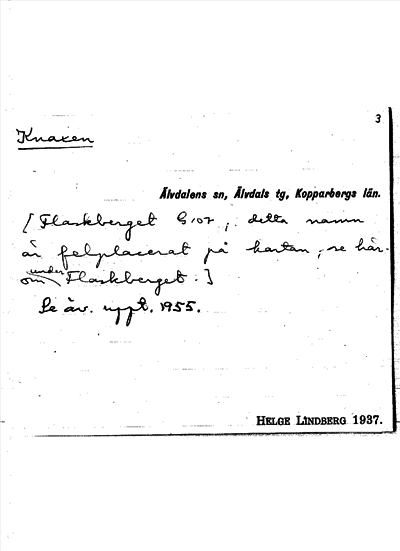 3
Knaxen
Älvdalens sn, Älvdals tg, Kopparbergs län.
[Flaskberget ; detta namn
är felplacerat på kartan, se här-
under Flaskberget.]
Se äv. uppt. 1955.
HELGE LINDBERG 1937.